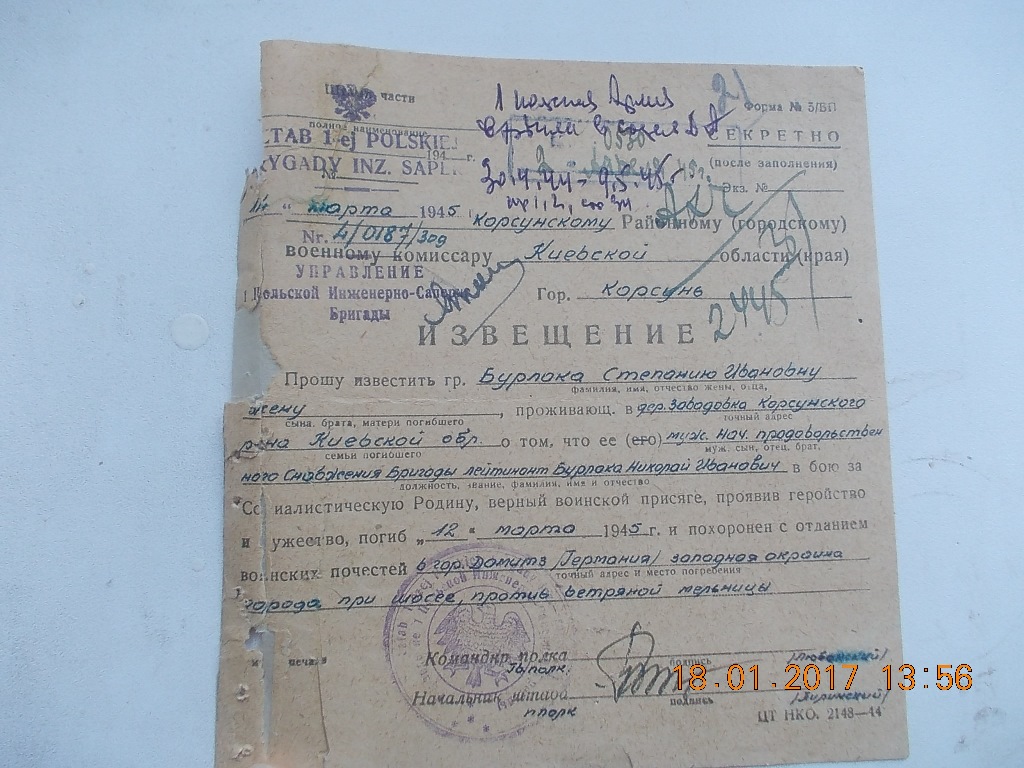 части
1 Армия
21
Форма № 3/ВП
полное наименование
ТАБ 1-ej POLSKIEJ
194 г.
СЕКРЕТНО
YGADY INZ. SAPER.
(после заполнения)
30.4.44 - 9.5.45.
Экз. №
14 " марта 1945 Корсунскому Районному (городскому)
Nr. 4/0187/
военному комиссару Киевской области (края)
УПРАВЛЕНИЕ
Польской Инженерно-Саперн
Бригады
Гор. Корсунь
2445
ИЗВЕЩЕНИЕ
Прошу известить гр. Бурлака Степанию Ивановну
фамилия, имя, отчество жены, отца,
жену, проживающ. в дер. Заводовка Корсунского
сына, брата, матери погибшего точный адрес
р-на Киевской обр. о том, что ее (его) муж. Нач. продовольствен
семьи погибшего муж, сын, отец, брат,
ного Снабжения Бригады лейтинант Бурлака Николай Иванович в бою за
должность, звание, фамилия, имя и отчество
Социалистическую Родину, верный воинской присяге, проявив геройство
и мужество, погиб „12" марта 1945 г. и похоронен с отданием
воинских почестей в гор. Домитз /Германия/ западная окраина
точный адрес и место погребения
города при шосее, против ветряной мельницы
печати
Командир полка
подпись
/Любанский/
Начальник штаба
ппольк
подпись
18.01.2017 13:56
ЦТ НКО. 2148—44